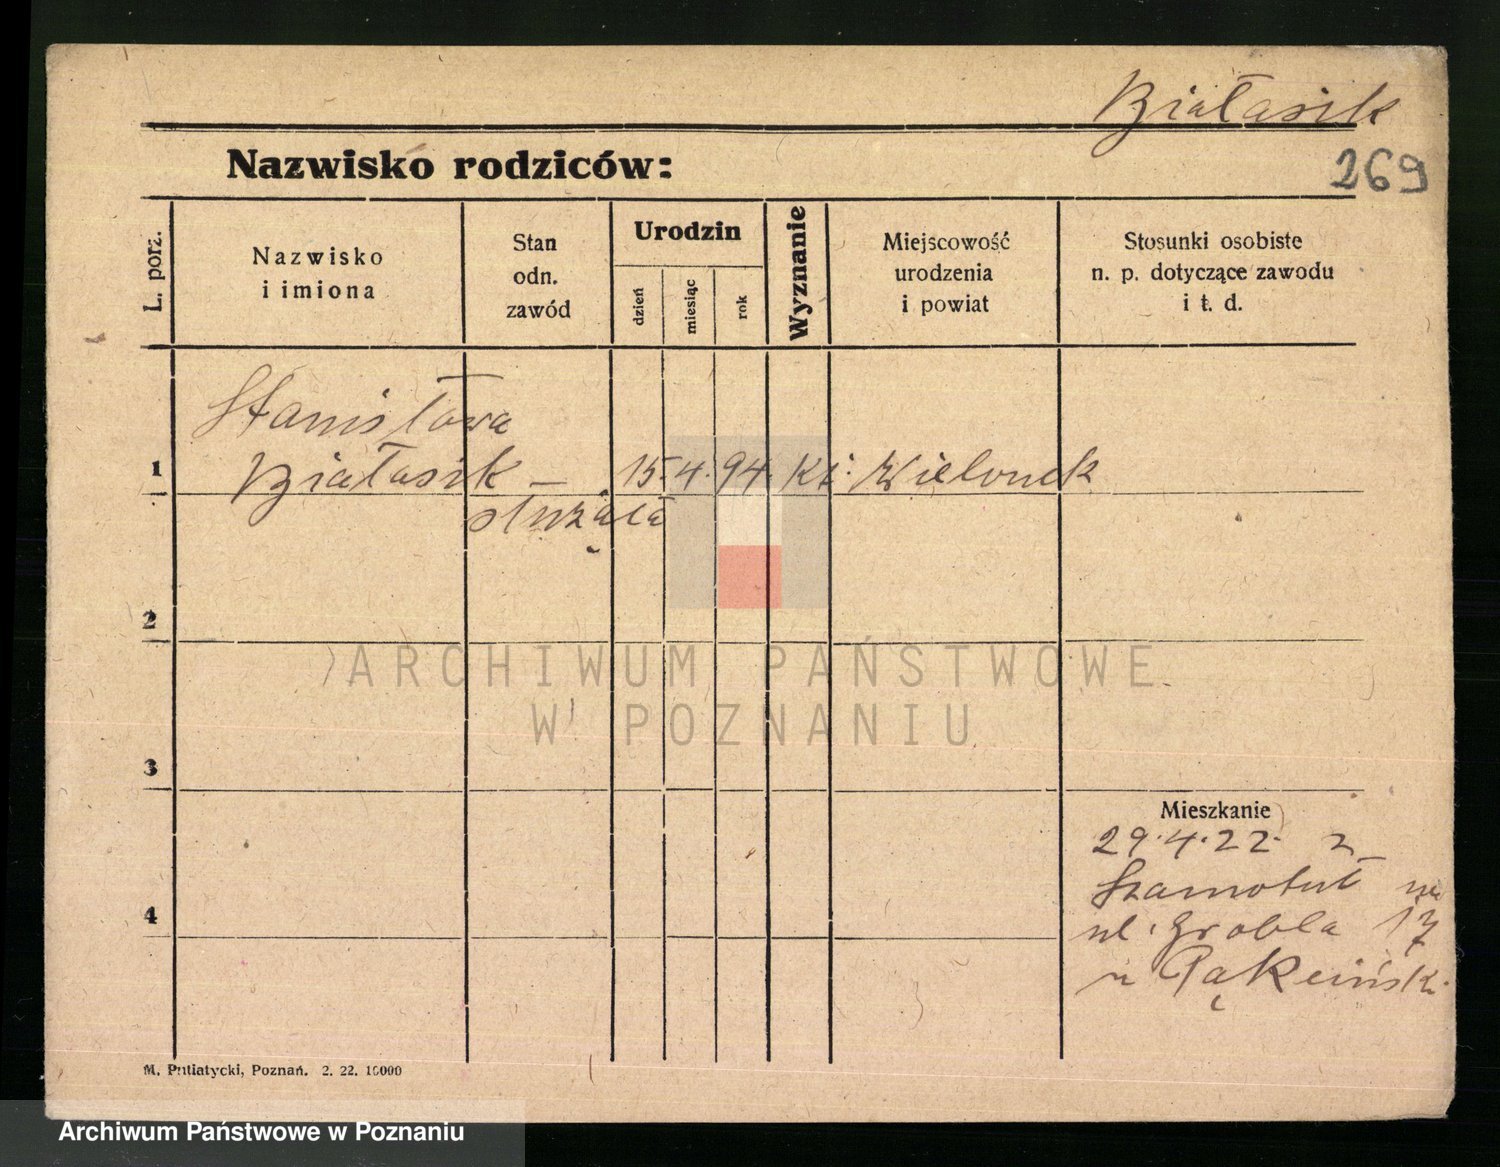 Białasik
Nazwisko rodziców:
269
L. porz.
Nazwisko
i imiona
Stan
odn.
zawód
Urodzin
dzień
miesiąc
rok
Wyznanie
Miejscowość
urodzenia
i powiat
Stosunki osobiste
n. p. dotyczące zawodu
i t. d.
Stanisława
1 Białasik – 15.4.94. kt. Wielonek
służąca
2
ARCHIWUM PAŃSTWOWE
W POZNANIU
3
Mieszkanie
29.4.22. z
Szamotuł na
4
ul. Grobla 17
u
M. Putiatycki, Poznań. 2. 22. 10000
Archiwum Państwowe w Poznaniu